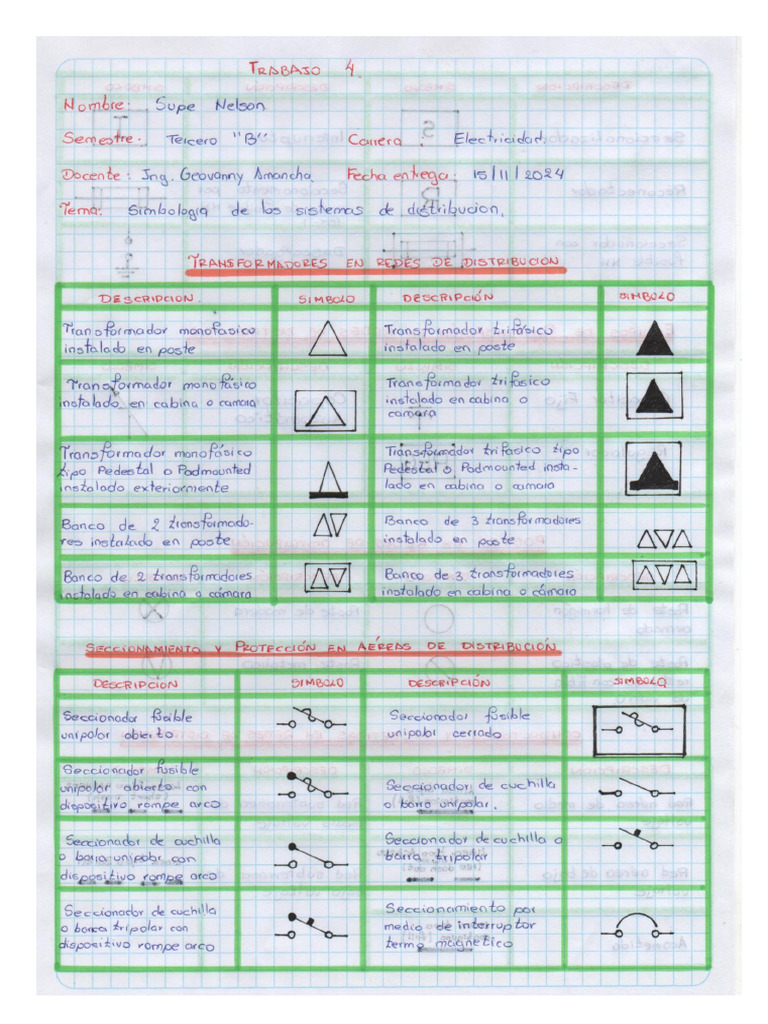 TRABAJO 4.
Nombre: Supe Nelson
Semestre: Tercero "B" Carrera: Electricidad.
Docente: Ing. Geovanny Amancha. Fecha entrega: 15/11/2024
Tema: Simbología de los sistemas de distribucion.
TRANSFORMADORES EN REDES DE DISTRIBUCION
DESCRIPCION SIMBOLO DESCRIPCIÓN SIMBOLO
Transformador monofasico
instalado en poste
Transformador trifásico
instalado en poste
Transformador monofásico
instalado en cabina o camara
Transformador trifasico
instalado en cabina o
camara
Transformador monofásico
tipo Pedestal o Padmounted
instalado exteriormente
Transformador trifasico tipo
Pedestal o Padmounted insta-
lado en cabina o camara
Banco de 2 transformado-
res instalado en poste
Banco de 3 transformadores
instalado en poste
Banco de 2 transformadores
instalado en cabina o cámara
Banco de 3 transformadores
instalado en cabina o cámara
SECCIONAMIENTO Y PROTECCIÓN EN AÉREAS DE DISTRIBUCIÓN
DESCRIPCION SIMBOLO DESCRIPCIÓN SIMBOLO
Seccionador fusible
unipolar abierto
Seccionador fusible
unipolar cerrado
Seccionador fusible
unipolar abierto con
dispositivo rompe arco
Seccionador de cuchilla
o barra unipolar.
Seccionador de cuchilla
o barra unipolar con
dispositivo rompe arco
Seccionador de cuchilla o
barra tripolar
Seccionador de cuchilla
o barra tripolar con
dispositivo rompe arco
Seccionamiento por
medio de interruptor
termo magnetico